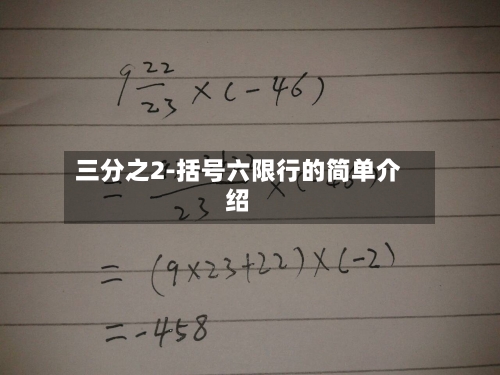 9 22/23 × (-46)
三分之2-括号六限行的简单介
绍
= 23 × (
= (9×23+22)×(-2)
= -458